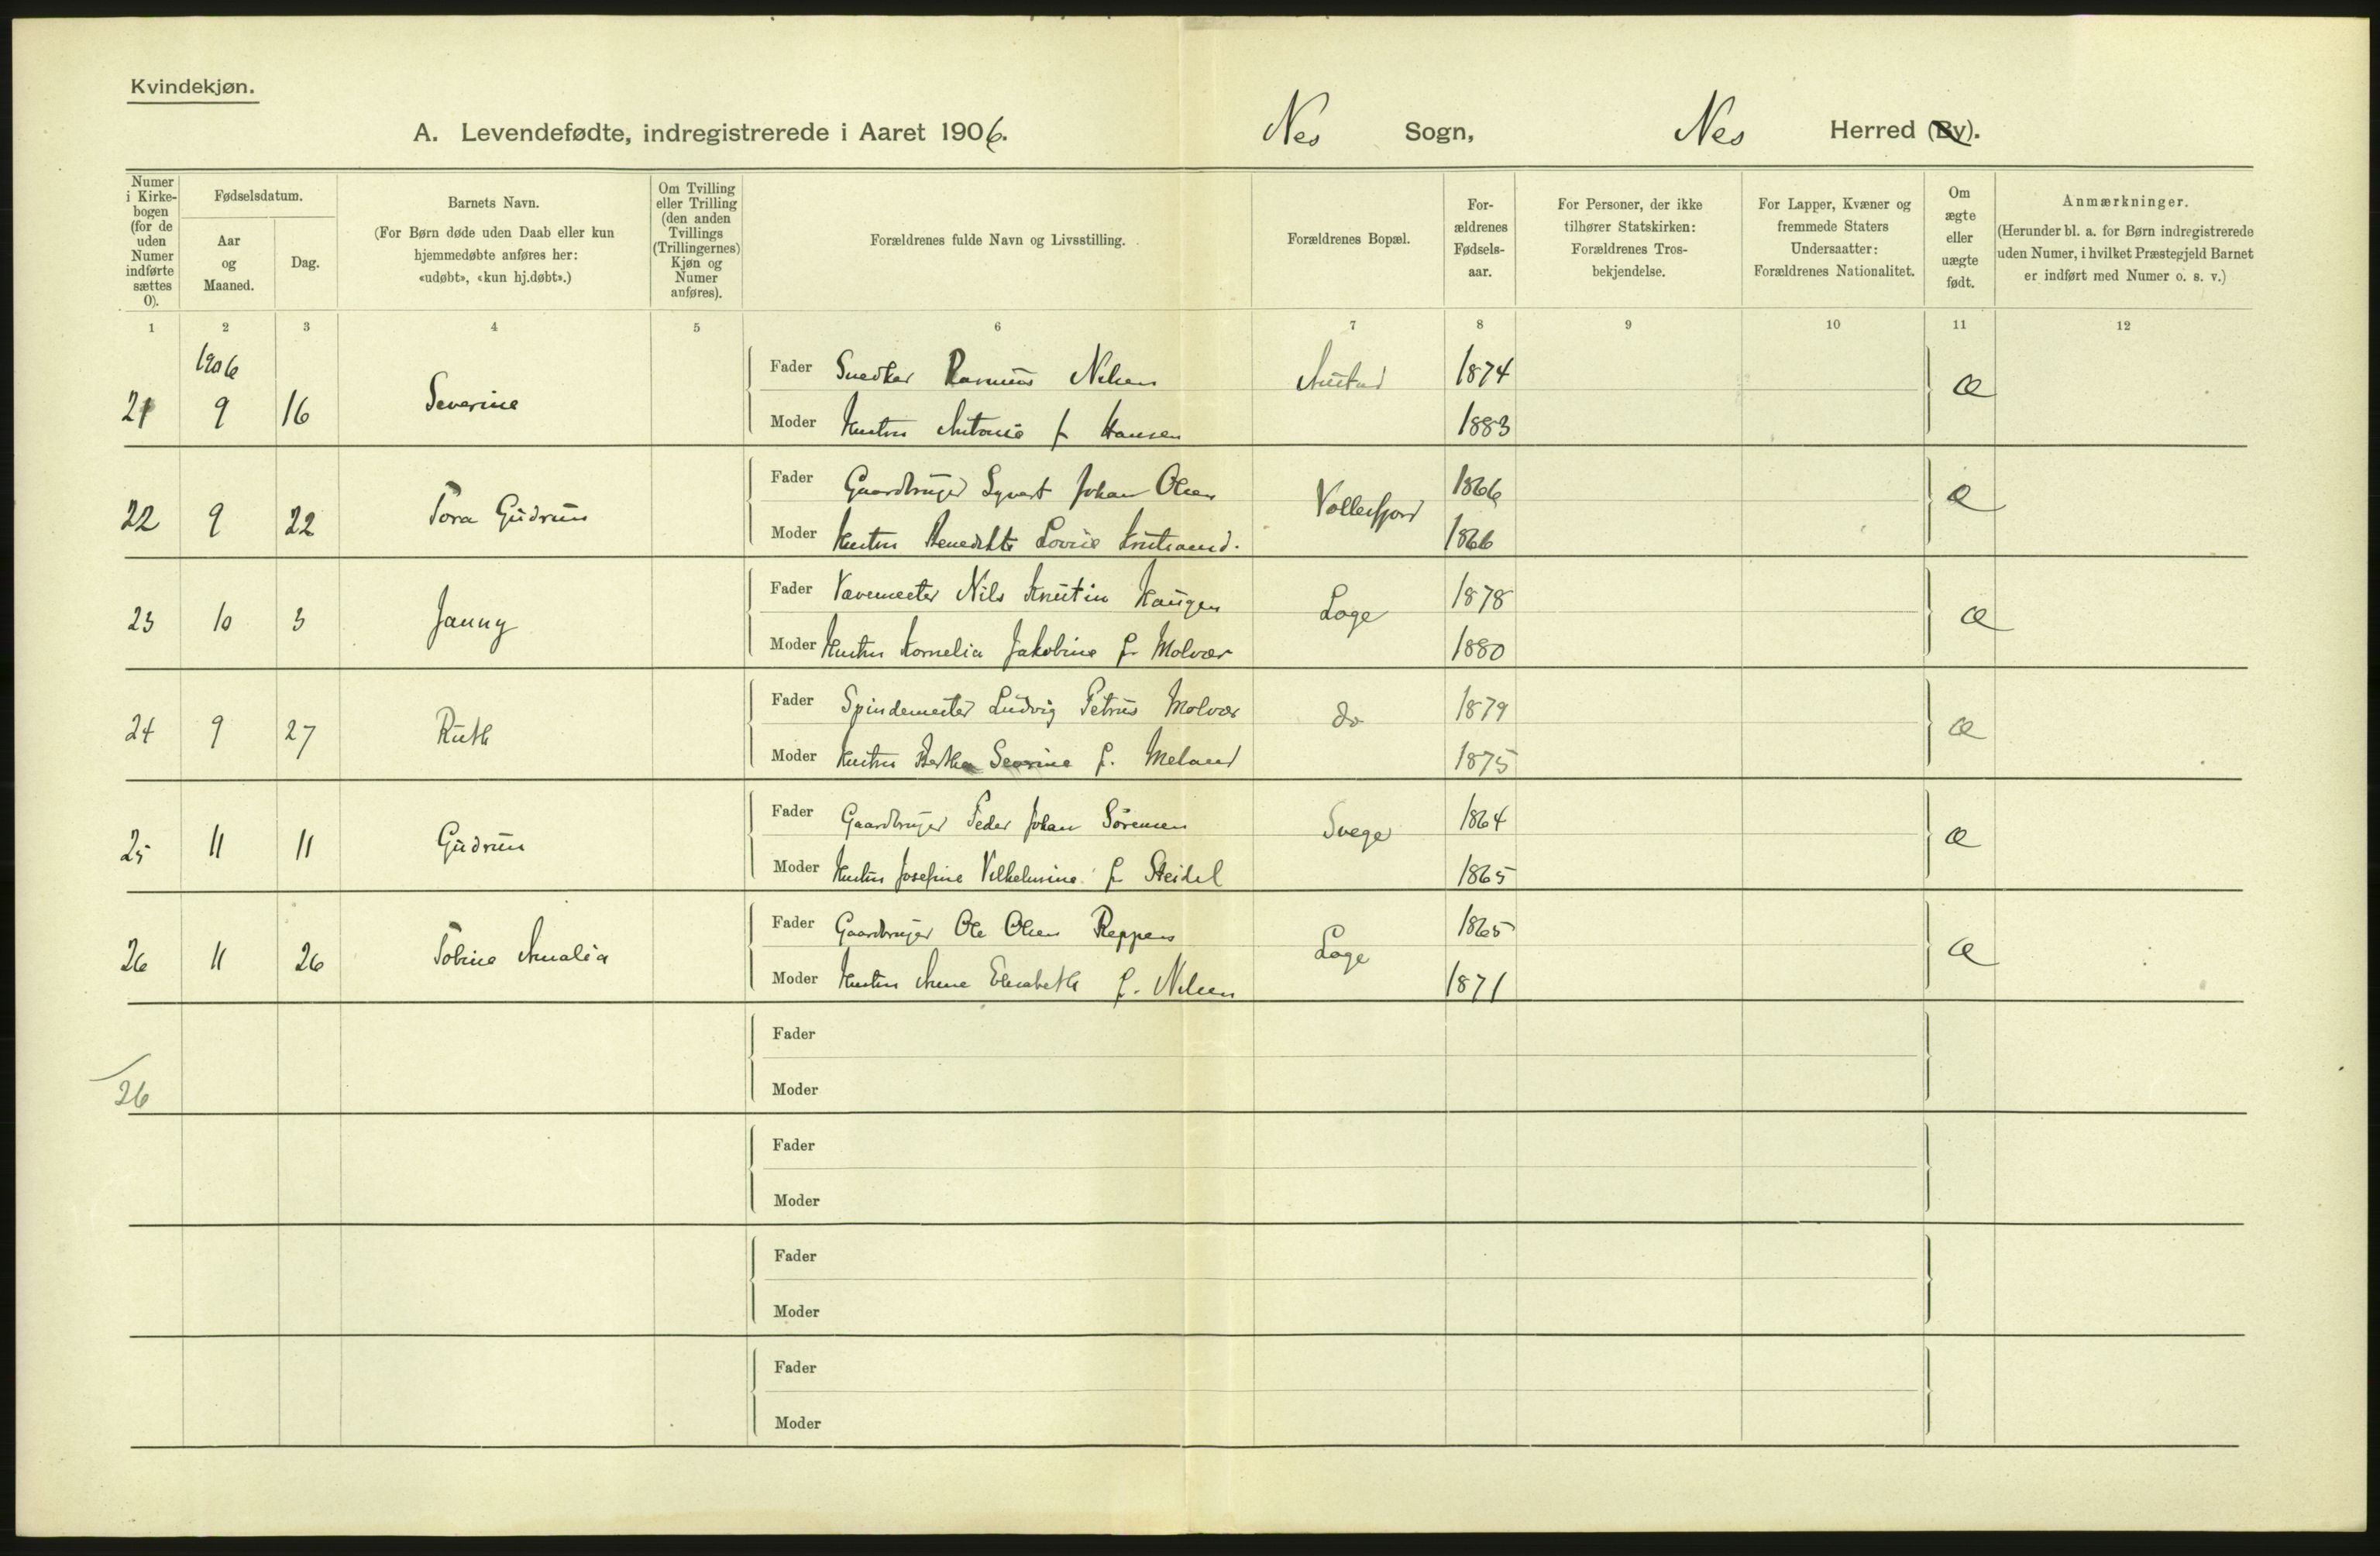 Kvindekjøn.
A. Levendefødte, indregistrerede i Aaret 1906. Nes Sogn, Nes Herred (By).
Numer i Kirkebogen (for de uden Numer indførte sættes 0).
Fødselsdatum.
Aar og Maaned.
Dag.
Barnets Navn.
(For Børn døde uden Daab eller kun hjemmedøbte anføres her: «udøbt», «kun hj.døbt».)
Om Tvilling eller Trilling (den anden Tvillings (Trillingernes) Kjøn og Numer anføres).
Forældrenes fulde Navn og Livsstilling.
Forældrenes Bopæl.
Forældrenes Fødselsaar.
For Personer, der ikke tilhører Statskirken: Forældrenes Trosbekjendelse.
For Lapper, Kvæner og fremmede Staters Undersaatter: Forældrenes Nationalitet.
Om ægte eller uægte født.
Anmærkninger.
(Herunder bl. a. for Børn indregistrerede uden Numer, i hvilket Præstegjeld Barnet er indført med Numer o. s. v.)
1 2 3 4 5 6 7 8 9 10 11 12
1906
21 9 16 Severine
Fader Snedker Rasmus Nilsen Austad 1874 æ
Moder Hustru Antonie f Hansen 1883
22 9 22 Tora Gudrun
Fader Gaardbruger Syvert Johan Olsen Vollesfjord 1866 æ
Moder Hustru Benedikte Lovise 1866
23 10 3 Janny
Fader Vævemester Nils Knutin Haugen Loge 1878 æ
Moder Hustru Kornelia Jakobine f. Molvær 1880
24 9 27 Ruth
Fader Spindemester Ludvig Petrus Molvær do 1879 æ
Moder Hustru Berthe Severine f. Meland 1875
25 11 11 Gudrun
Fader Gaardbruger Peder Johan Sörensen Svege 1864 æ
Moder Hustru Josefine Vilhelmine f. Steidel 1865
26 11 26 Tobine Amalia
Fader Gaardbruger Ole Olsen Reppen Loge 1865 æ
Moder Hustru Anne Elisabeth f. Nilsen 1871
Fader
26
Moder
Fader
Moder
Fader
Moder
Fader
Moder